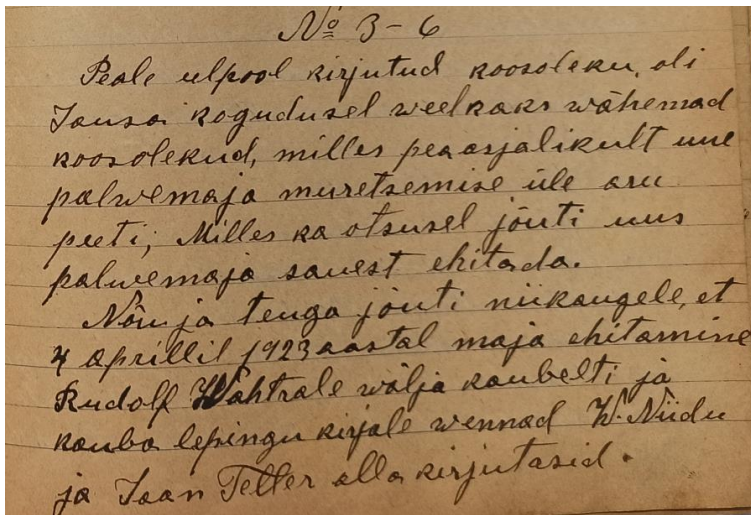 No 3-6
Peale ulpool kirjutud koosoleku, oli
Jausa kogudusel weel kaks wähemad
koosolekud, milles peaasjalikult uue
palwemaja muretsemise üle aru
peeti; Milles ka otsusel jõuti uus
palwemaja sauest ehitada.
Nõu ja teuga jõuti niikaugele, et
4 aprillil 1923 aastal maja ehitamine
Rudolf Wahtrale wälja kaubelti ja
kauba lepingu kirjale wennad W. Niidu
ja Jaan Teller alla kirjutasid.